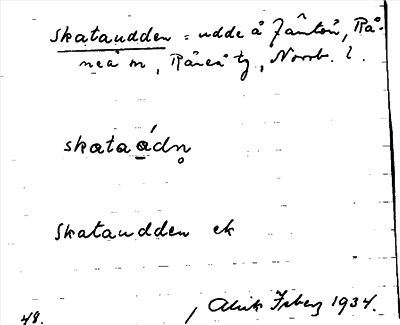 Skataudden = udde å Jämtön, Rå-
neå sn, Råneå tg, Norrb. l.
skataádn̥
Skataudden ek
48. / Alrik Isberg 1934.